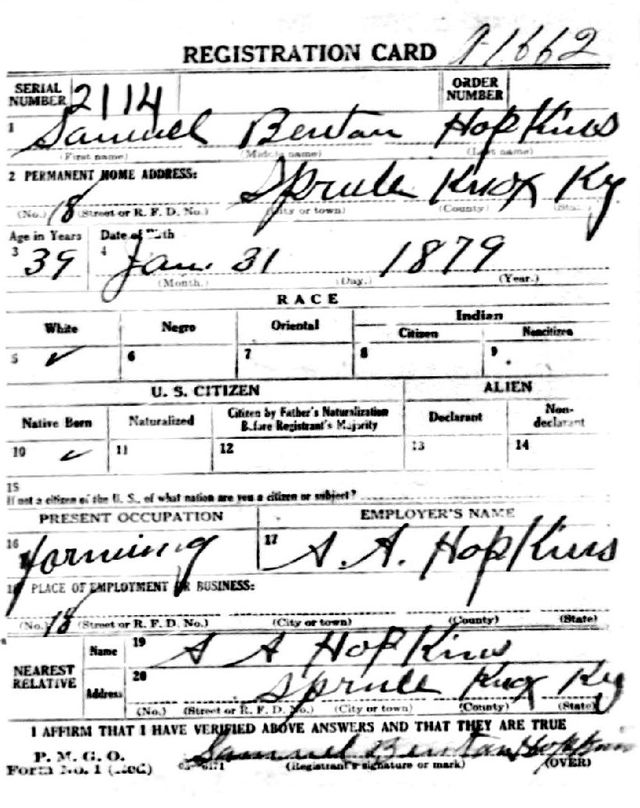 REGISTRATION CARD A1662
SERIAL NUMBER 2114 ORDER NUMBER
1 Samuel Bentan Hopkins
(First name) (Middle name) (Last name)
2 PERMANENT HOME ADDRESS:
Sprule Knox Ky
(No.) 18 (Street or R. F. D. No.) (City or town) (County) (State)
Age in Years Date of Birth
3 39 4 Jan. 31 1879
(Month.) (Day.) (Year.)
RACE
White Negro Oriental Indian
Citizen Noncitizen
5 ✓ 6 7 8 9
U. S. CITIZEN ALIEN
Native Born Naturalized Citizen by Father's Naturalization Before Registrant's Majority Declarant Non-declarant
10 ✓ 11 12 13 14
15
If not a citizen of the U. S., of what nation are you a citizen or subject?
PRESENT OCCUPATION EMPLOYER'S NAME
16 Farming 17 A. A. Hopkins
18 PLACE OF EMPLOYMENT OR BUSINESS:
(No.) 18 (Street or R. F. D. No.) (City or town) (County) (State)
NEAREST RELATIVE
Name 19 A A Hopkins
Address 20 Sprule Knox Ky
(No.) (Street or R. F. D. No.) (City or town) (County) (State)
I AFFIRM THAT I HAVE VERIFIED ABOVE ANSWERS AND THAT THEY ARE TRUE
P. M. G. O.
Form No. 1 (Red) Samuel Bentan Hopkins
(Registrant's signature or mark) (OVER)